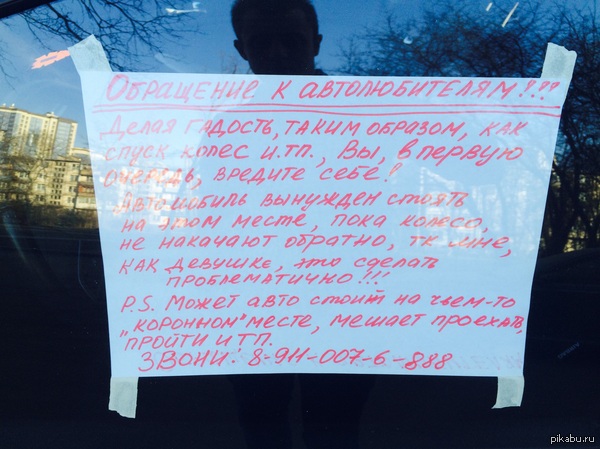 Обращение к автолюбителям!!!
Делая гадость, таким образом, как
спуск колес и.тп., Вы, в первую
очередь, вредите себе!
Автомобиль вынужден стоять
на этом месте, пока колесо,
не накачают обратно, тк мне,
как девушке, это сделать
проблематично!!!
P.S. Может авто стоит на чьем-то
„коронном" месте, мешает проехать,
пройти и тп.
Звони: 8-911-007-6-888
pikabu.ru